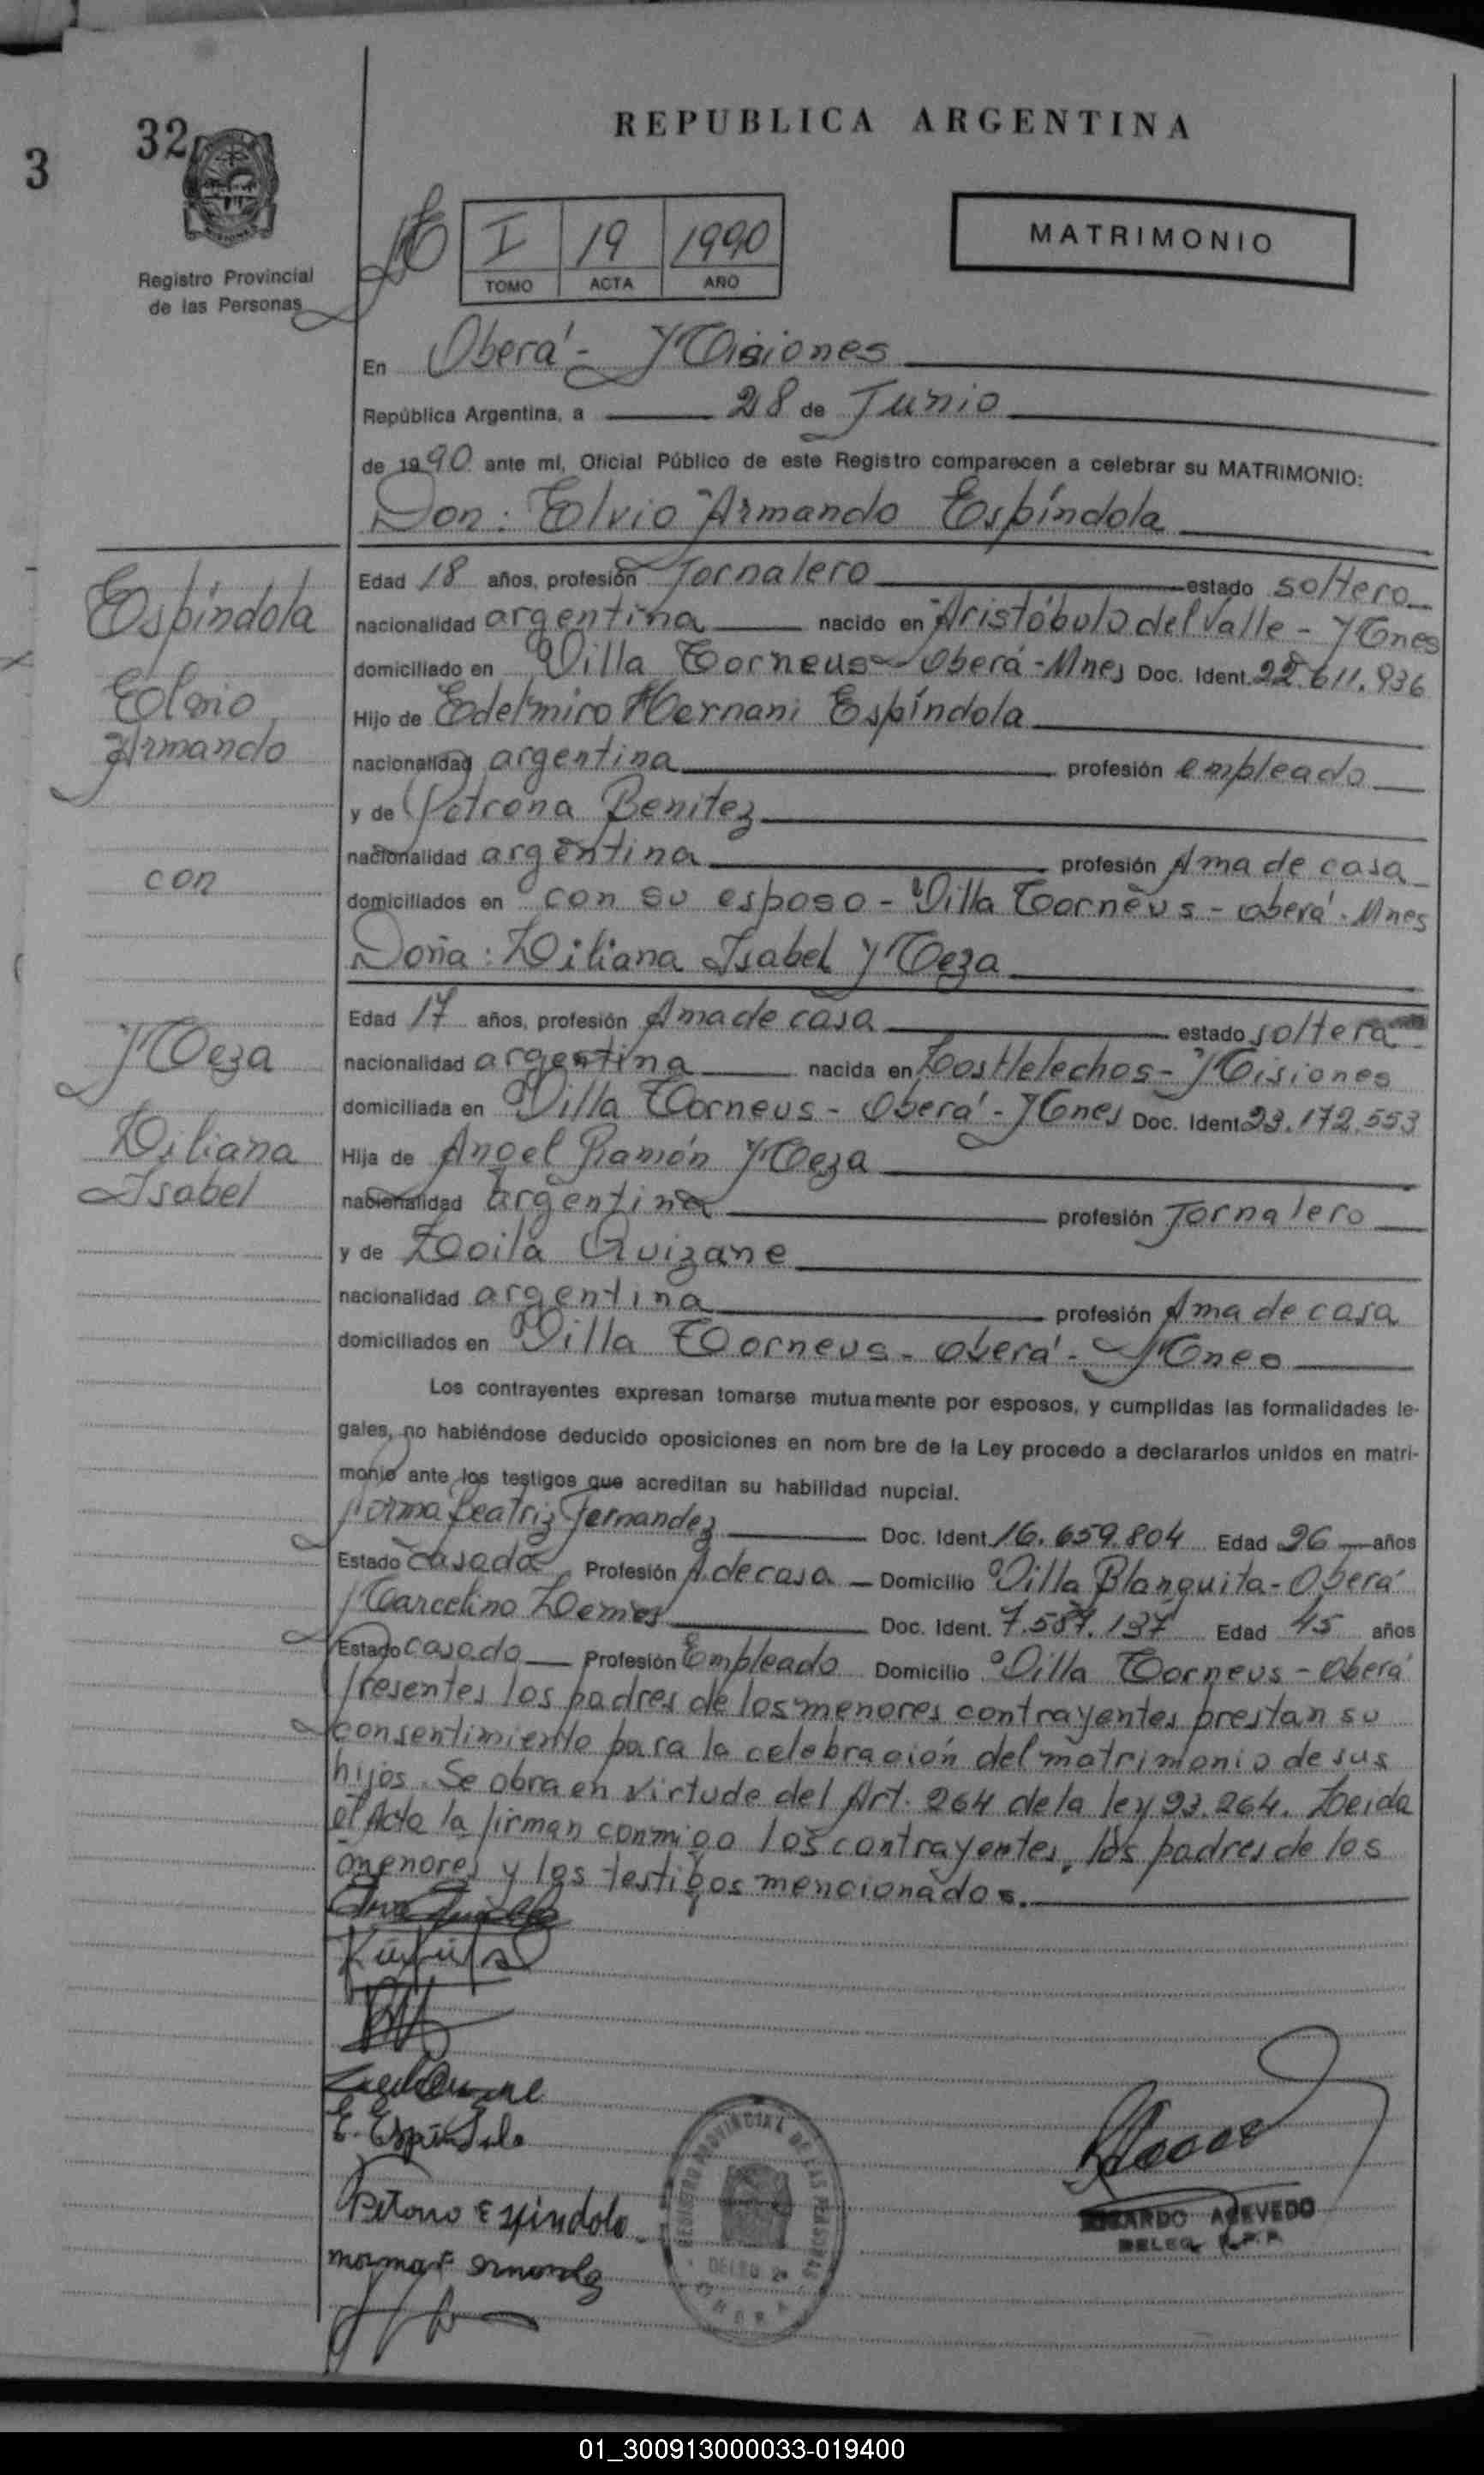 REPUBLICA ARGENTINA
3
32
Registro Provincial
de las Personas
I 19 1990
TOMO ACTA AÑO
MATRIMONIO
En Oberá - Misiones
República Argentina, a 28 de Junio
de 1990 ante mí, Oficial Público de este Registro comparecen a celebrar su MATRIMONIO:
Don: Elvio Armando Espíndola
Edad 18 años, profesión Jornalero estado soltero
nacionalidad argentina nacido en Aristóbulo del Valle - Mnes
domiciliado en Villa Torneus - Oberá - Mnes Doc. Ident. 22.611.936
Hijo de Edelmiro Hernani Espíndola
nacionalidad argentina profesión empleado
y de Petrona Benitez
nacionalidad argentina profesión Ama de casa
domiciliados en con su esposo - Villa Torneus - Oberá - Mnes
Doña: Liliana Isabel Meza
Edad 17 años, profesión Ama de casa estado soltera
nacionalidad argentina nacida en Los Helechos - Misiones
domiciliada en Villa Torneus - Oberá - Mnes Doc. Ident 23.172.553
Hija de Angel Ramón Meza
nacionalidad argentina profesión Jornalero
y de Zoila Quizane
nacionalidad argentina profesión Ama de casa
domiciliados en Villa Torneus - Oberá - Mnes
Los contrayentes expresan tomarse mutuamente por esposos, y cumplidas las formalidades le-
gales, no habiéndose deducido oposiciones en nom bre de la Ley procedo a declararlos unidos en matri-
monio ante los testigos que acreditan su habilidad nupcial.
Norma Beatriz Fernandez Doc. Ident. 16.659.804 Edad 26 años
Estado casada Profesión A. de casa Domicilio Villa Blanquita - Oberá
Marcelino Doc. Ident. 7.587.137 Edad 45 años
Estado casado Profesión Empleado Domicilio Villa Torneus - Oberá
Presentes los padres de los menores contrayentes prestan su
consentimiento para la celebración del matrimonio de sus
hijos. Se obra en virtude del Art. 264 de la ley 23.264. Leida
el Acta la firman conmigo los contrayentes, los padres de los
menores y los testigos mencionados.
Espíndola
Elvio
Armando
con
Meza
Liliana
Isabel
E. Espíndola
Petrona Espindola
REGISTRO PROVINCIAL DE LAS PERSONAS
DELEG 2ª
OBERA
RICARDO ACEVEDO
DELEG. R.P.P.
01_300913000033-019400